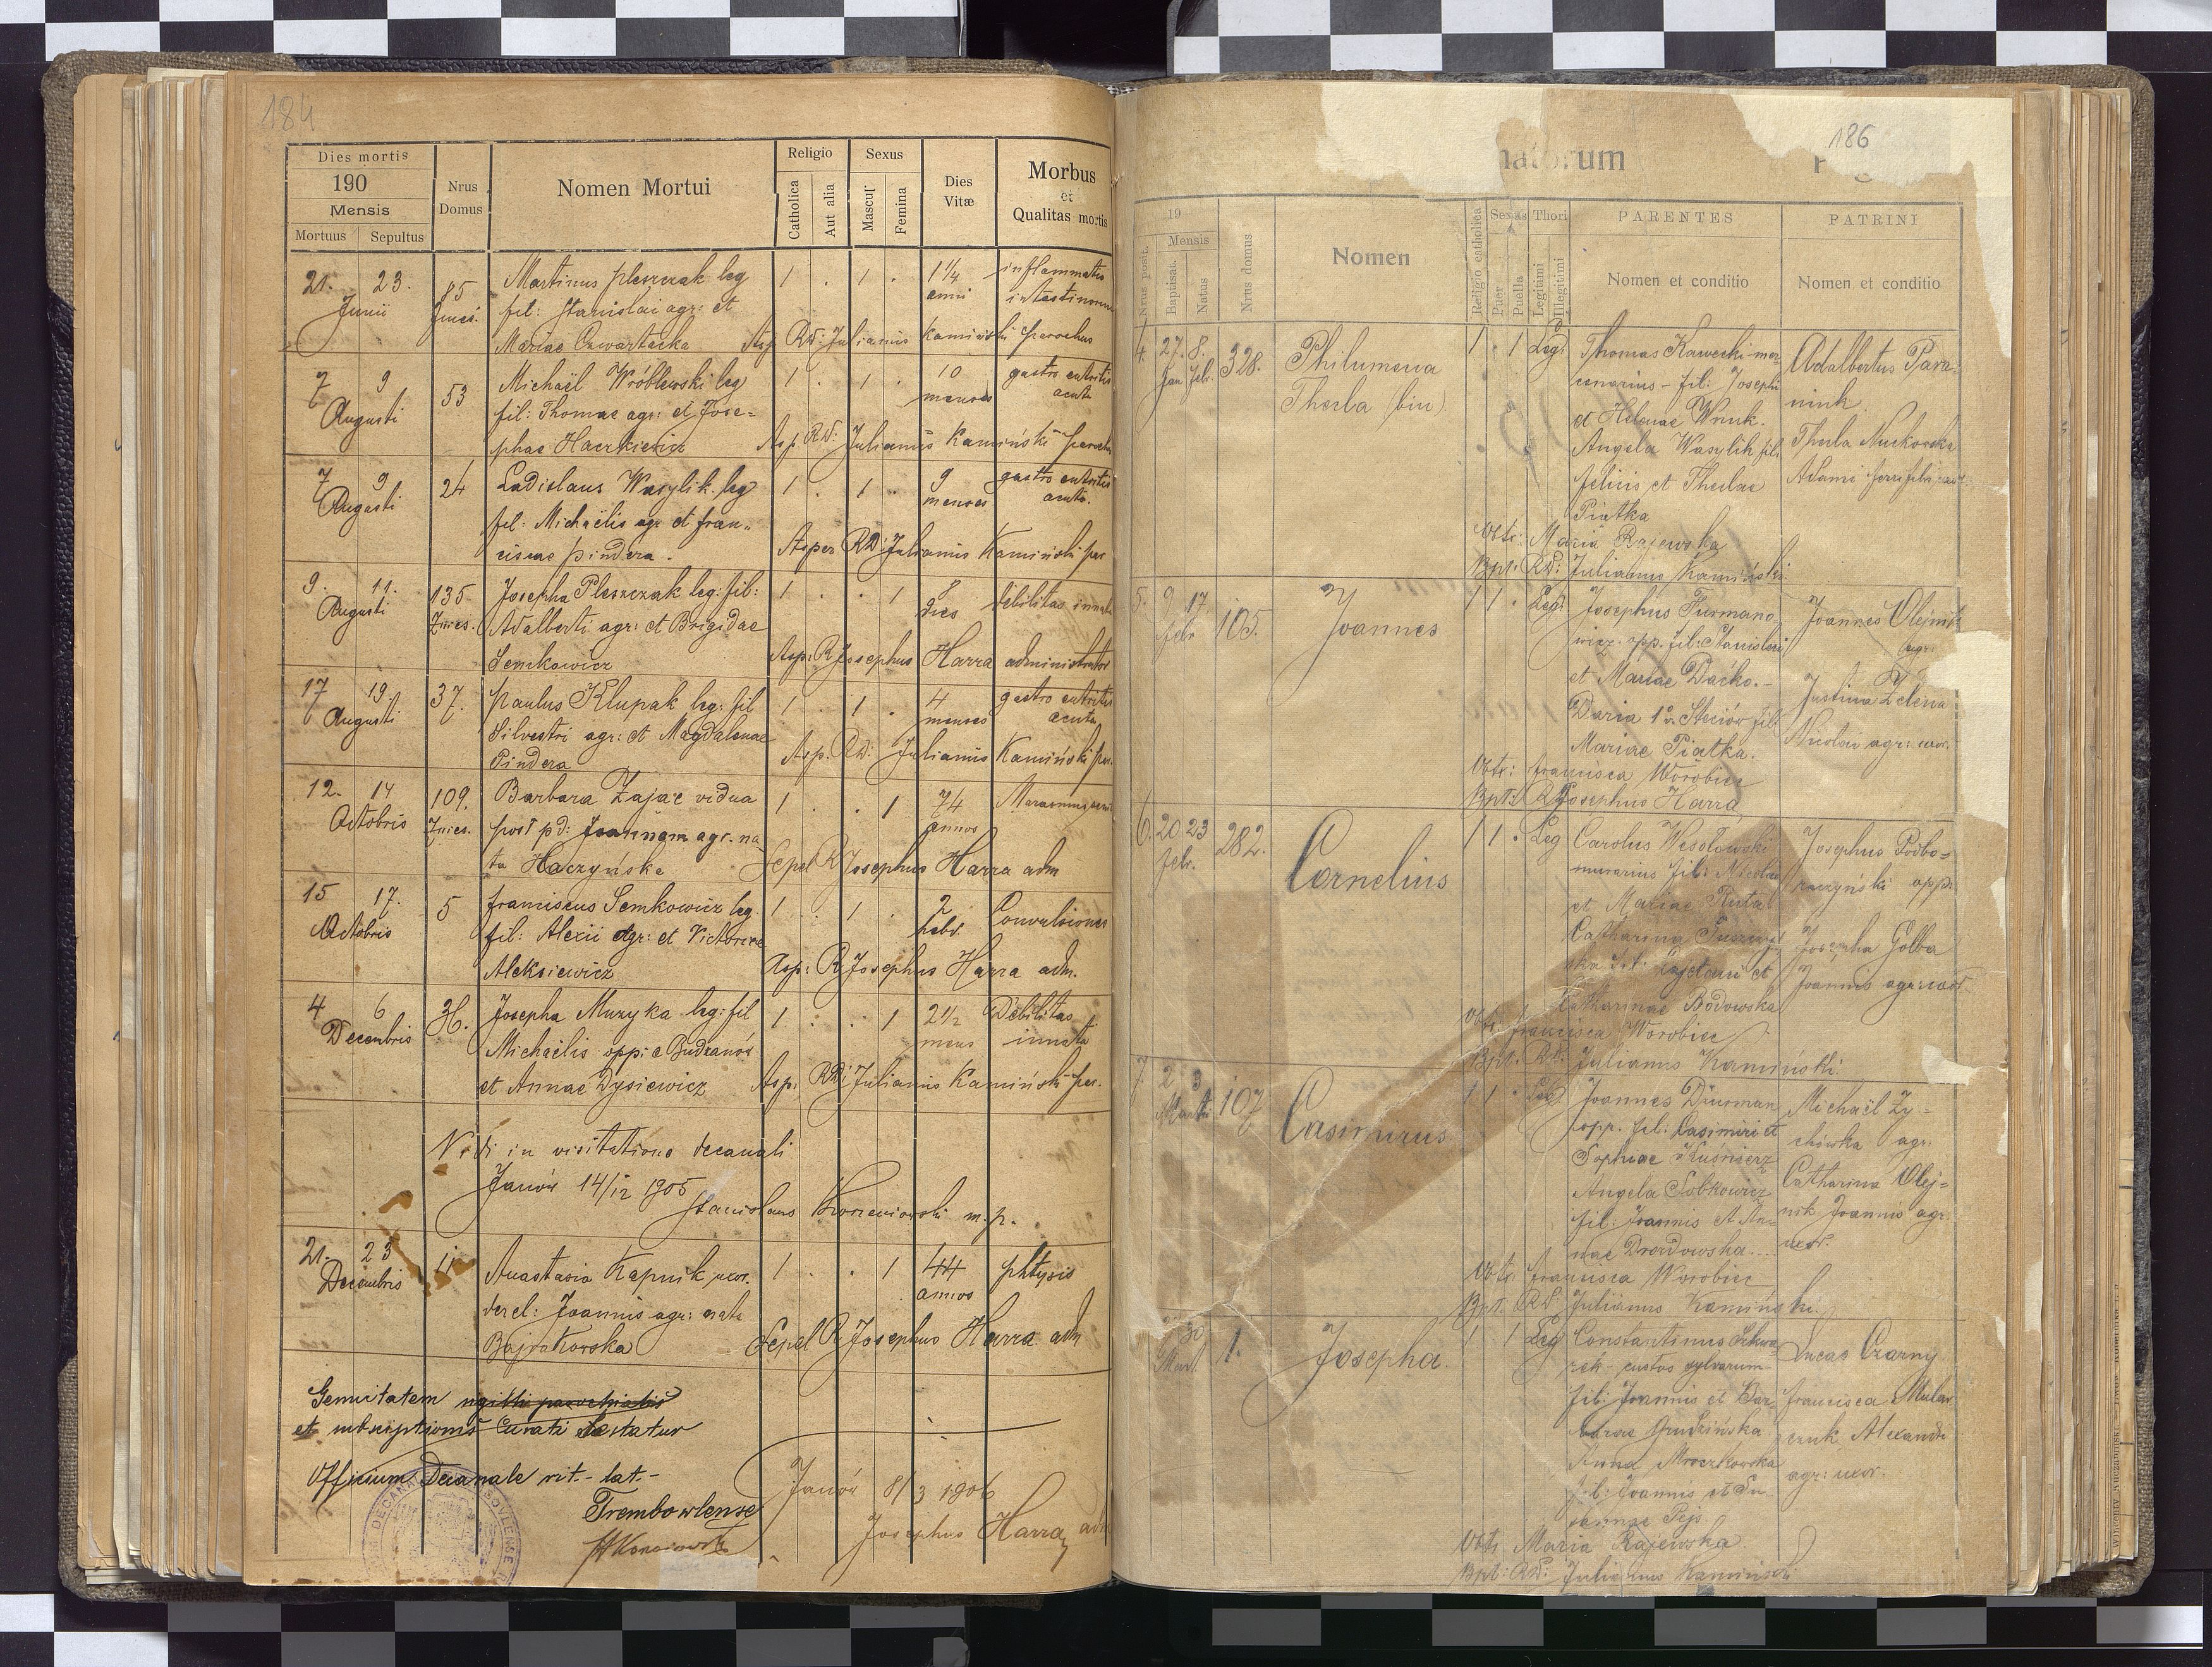 184
Dies mortis
190
Mensis
Mortuus Sepultus
Nrus Domus
Nomen Mortui
Religio
Catholica
Aut alia
Sexus
Mascul.
Femina
Dies Vitæ
Morbus
et
Qualitas mortis
21. 23. 85 Martinus Pleszczak leg 1 . 1 . 1 1/4 inflammatio
Junii fil: Stanislai agr: et anni intestinorum
Mariae Czwartacka Asp RD: Julianus Kamiński parochus
7 9 53 Michaël Wróblewski leg 1 . 1 . 10 gastro enteritis
Augusti fil: Thomae agr: et Jose= menses acuta
phae Haczkiewicz Asp. RD: Julianus Kamiński
7 9 24 Ladislaus Wasylik leg 1 . 1 . 9 gastro enteritis
Augusti fil: Michaëlis agr et Fran= menses acuta.
ciscae Pindera. Asper RD: Julianus Kamiński par
9. 11. 135 Josepha Pleszczak leg: fil: 1 . . 1 8 debilitas innata
Augusti Adalberti agr: et Brigidae dies
Semkowicz Asp: R Josephus Harra administrator
17 19. 37. Paulus Klupak leg: fil 1 . 1 . 4 gastro enteritis
Augusti Silvestri agr: et Magdalenae menses acuta
Pindera Asp. RD: Julianus Kamiński par.
12. 14 109. Barbara Zając vidua 1 . . 1 74
Octobris post pd: Joannem agr. na annos
ta Haczyńska Sepel R Josephus Harra adm
15 17. 5 Franciscus Semkowicz leg 1 . 1 . 2 Convulsiones
Octobris fil: Alexii agr: et Victoriae hebd
Aleksiewicz Asp: R Josephus Harra adm.
4 6 36. Josepha Muzyka leg: fil 1 . . 1 2 1/2 Debilitas
Decembris Michaëlis opp: a Budzanów mens innata
et Annae Dysiewicz Asp: RD: Julianus Kamiński par.
Vidi in visitatione decanali
Janów 14/12 1905
Stanislaus Korzeniowski m.p.
21. 23 11 Anastasia Kapnik uxor. 1 . . 1 44 phtysis
Decembris derel: Joannis agr: nata annos
Bajrakowska Sepel R Josephus Harra adm
Genuitatem
et subscriptionis Curati testatur
Officium Decanale rit.- lat.-
Trembowlense
Janów 8/3 1906
Josephus Harra adm
186
natorum
19
Nrus post.
Mensis
Baptisat.
Natus
Nrus domus
Nomen
Religio catholica
Sexus
Puer
Puella
Thori
Legitimi
Illegitimi
PARENTES
Nomen et conditio
PATRINI
Nomen et conditio
4. 27. 8. 328. Philumena 1 . 1 Leg. Thomas Kawecki mer Adalbertus Para=
Jan Febr. Thecla (bin) cenarius - fil: Josephi niuk
et Helenae Wnuk.
Angela Wasylik fil: Thecla
Felicis et Theclae Adami
Piątka
Obst: Maria Rajewska
Bpt: RD: Julianus Kamiński
5. 9 17. 105. Joannes 1 1 . Leg. Josephus Furmano Joannes Olejnik
Febr wicz. opp. fil: Stanislai agr:
et Mariae Daćko. - Justina Zelena
Daria 1° v. Steciów fil: Nicolai agr: uxor.
Mariae Piątka.
Obst: Francisca Worobiec
Bpt: R Josephus Harra
6. 20 23 282. Cornelius 1 1 . Leg Carolus Wesołowski Josephus Podho=
Febr. murarius fil: Nicolai raczyński opp:
et Mariae Ruta
Catharina Josepha Golba
ska fil: Cajetani et Joannis agr: uxor
Catharinae Bodowska
Obst: Francisca Worobiec
Bpt. RD: Julianus Kamiński.
7. 2 3 107 Casimirus 1 1 . Leg Joannes Diurman Michaël Zy=
Martii opp. fil: Casimiri et chówka agr:
Sophiae Kuśnierz Catharina Olej=
Angela Sobkowicz nik Joannis agr:
fil: Joannis et An= uxor.
nae Drozdowska.
Obst: Francisca Worobiec
Bpt. RD: Julianus Kamiński.
30 1. Josepha. 1 . 1 Leg Constantinus Lucas Czarny
Mart. custos sylvarum
fil: Joannis et Bar= Francisca Mular
barae Grudzińska czuk Alexandri
Anna Mroczkowska agr: uxor.
fil: Joannis et Su=
sannae Pejs.
Obst: Maria Rajewska
Bpt: RD: Julianus Kamiński